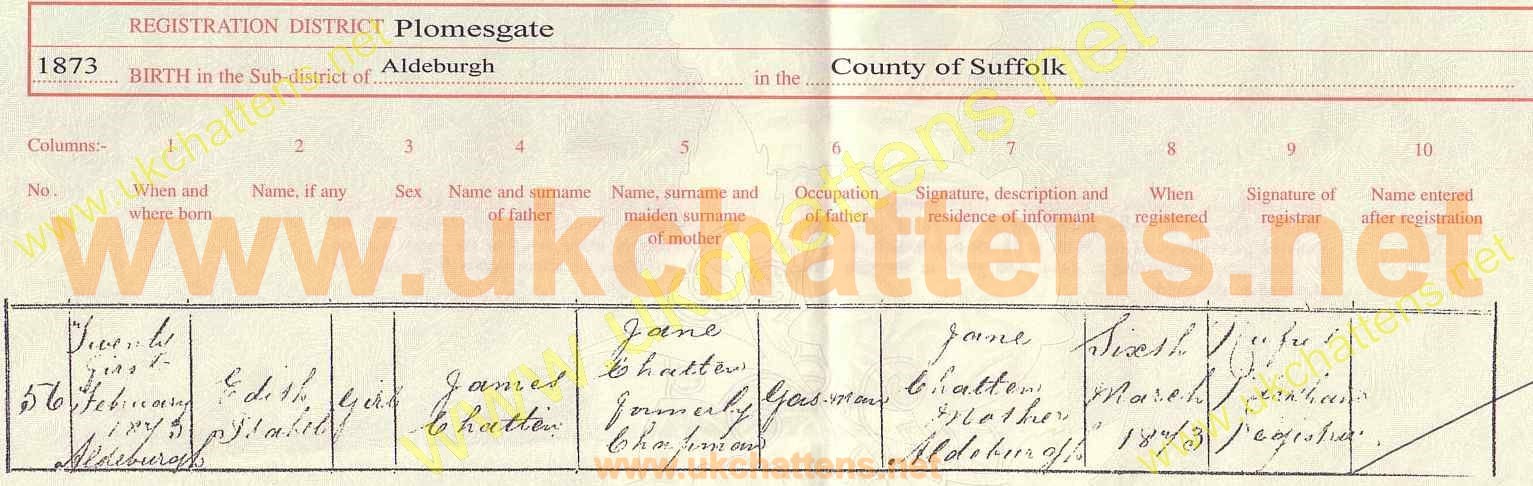 REGISTRATION DISTRICT Plomesgate
1873 BIRTH in the Sub-district of Aldeburgh in the County of Suffolk
Columns:- 1 2 3 4 5 6 7 8 9 10
No. When and where born Name, if any Sex Name and surname of father Name, surname and maiden surname of mother Occupation of father Signature, description and residence of informant When registered Signature of registrar Name entered after registration
www.ukchattens.net
www.ukchattens.net
www.ukchattens.net
www.ukchattens.net
56
Twenty
First
February
1873
Aldeburgh
Edith
Girl
James
Chatten
Jane
Chatten
formerly
Chapman
Gas-man
Jane
Chatten
Mother
Aldeburgh
Sixth
March
1873
Rufus
Registrar.
www.ukchattens.net
www.ukchattens.net